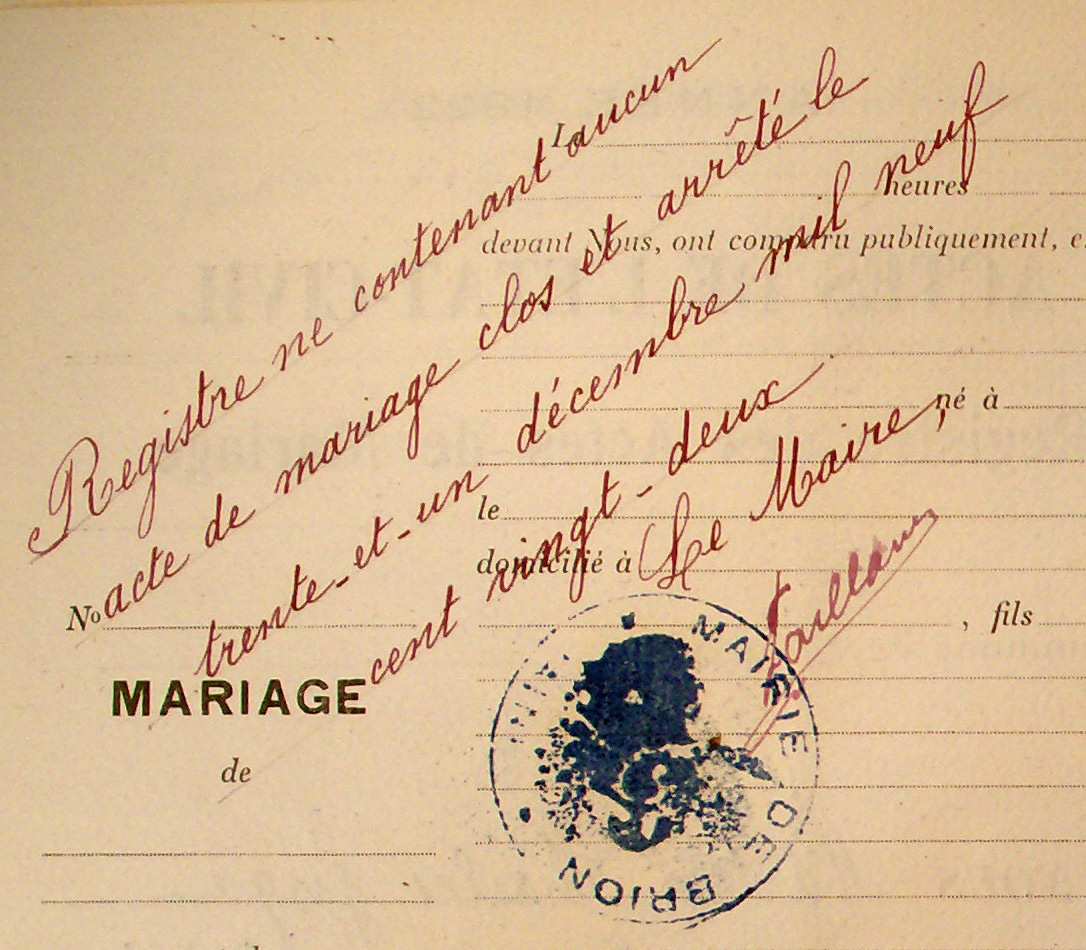 Registre ne contenant aucun
acte de mariage clos et arrêté le
trente-et-un décembre mil neuf
cent vingt-deux
Le Maire,
L
heures
devant Nous, ont comparu publiquement, e
né à
le
domicilié à
, fils
No
MARIAGE
de
MAIRIE DE BRION